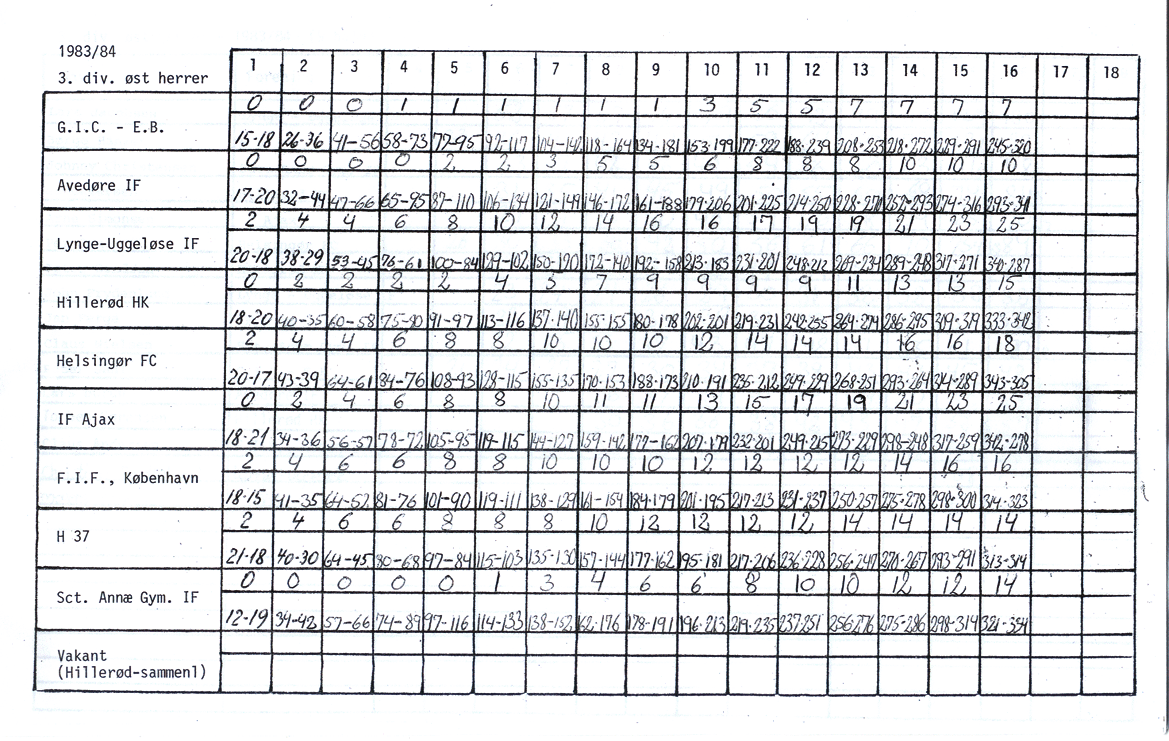 1983/84
3. div. øst herrer 1 2 3 4 5 6 7 8 9 10 11 12 13 14 15 16 17 18
0 0 0 1 1 1 1 1 1 3 5 5 7 7 7 7
G.I.C. - E.B.
15-18 26-36 41-56 58-73 77-95 92-117 104-142 118-164 134-181 153-199 177-222 188-239 208-253 218-272 229-291 245-320
0 0 0 0 2 2 3 5 5 6 8 8 8 10 10 10
Avedøre IF
17-20 32-44 47-66 65-95 87-110 106-134 121-149 146-172 161-188 179-206 201-225 214-250 228-270 252-293 274-316 293-341
2 4 4 6 8 10 12 14 16 16 17 19 19 21 23 25
Lynge-Uggeløse IF
20-18 38-29 53-45 76-61 100-84 129-102 150-120 172-140 192-158 213-183 231-201 248-212 269-234 289-248 317-271 340-287
0 2 2 2 2 4 5 7 9 9 9 9 11 13 13 15
Hillerød HK
18-20 40-35 60-58 75-90 91-97 113-116 137-140 155-155 180-178 202-201 219-231 242-255 264-274 286-295 319-319 333-342
2 4 4 6 8 8 10 10 10 12 14 14 14 16 16 18
Helsingør FC
20-17 43-39 64-61 84-76 108-93 128-115 155-135 170-153 188-173 210-191 235-212 249-229 268-251 293-264 314-289 343-305
0 2 4 6 8 8 10 11 11 13 15 17 19 21 23 25
IF Ajax
18-21 34-36 56-57 78-72 105-95 119-115 144-127 159-142 177-162 207-179 232-201 249-215 273-229 298-248 317-259 342-278
2 4 6 6 8 8 10 10 10 12 12 12 12 14 16 16
F.I.F., København
18-15 41-35 64-52 81-76 101-90 119-111 138-129 161-154 184-179 201-195 217-213 231-237 250-257 275-278 298-300 314-323
2 4 6 6 8 8 8 10 12 12 12 12 14 14 14 14
H 37
21-18 40-30 64-45 80-68 97-84 115-103 135-130 157-144 177-162 195-181 217-206 236-228 256-247 270-267 293-291 313-314
0 0 0 0 0 1 3 4 6 6 8 10 10 12 12 14
Sct. Annæ Gym. IF
12-19 34-42 57-66 74-89 97-116 114-133 138-152 162-176 178-191 196-213 219-235 237-251 256-276 275-286 298-314 321-334
Vakant
(Hillerød-sammenl)